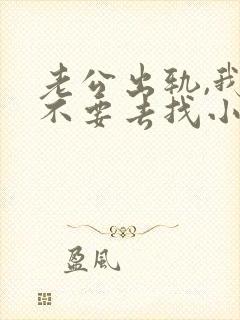 老公出轨,我
不要去找小
盈风